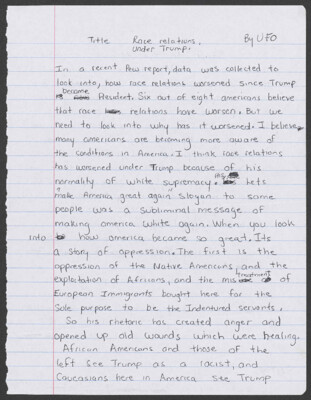 Title Race relations. By UFO
under Trump.
In a recent Pew report, data was collected to
look into, how race relations worsened since Trump
became
President. Six out of eight americans believe
that race relations have worsen. But we
need to look into why has it worsened. I believe
many americans are becoming more aware of
the conditions in America. I think race relations
has worsened under Trump because of his
normality of white supremacy. His lets
"make America great again" slogan to some
people was a subliminal message of
making america white again. When you look
into how america became so great. Its
a story of oppression. The first is the
oppression of the Native Americans, and the
exploitation of Africans, and the mistreatment of
European Immigrants bought here for the
sole purpose to be the indentured servants.
So his rhetoric has created anger and
opened up old wounds which were healing.
African Americans and those of the
left see Trump as a racist, and
Caucasians here in America see Trump